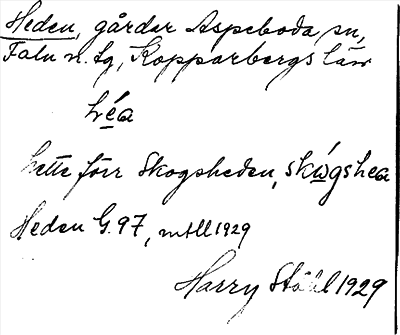 Heden, gårdar Aspeboda sn,
Falu n. tg, Kopparbergs län
héa
hette förr Skogsheden, skώgshea
Heden G. 97, mtll 1929
Harry Ståhl 1929